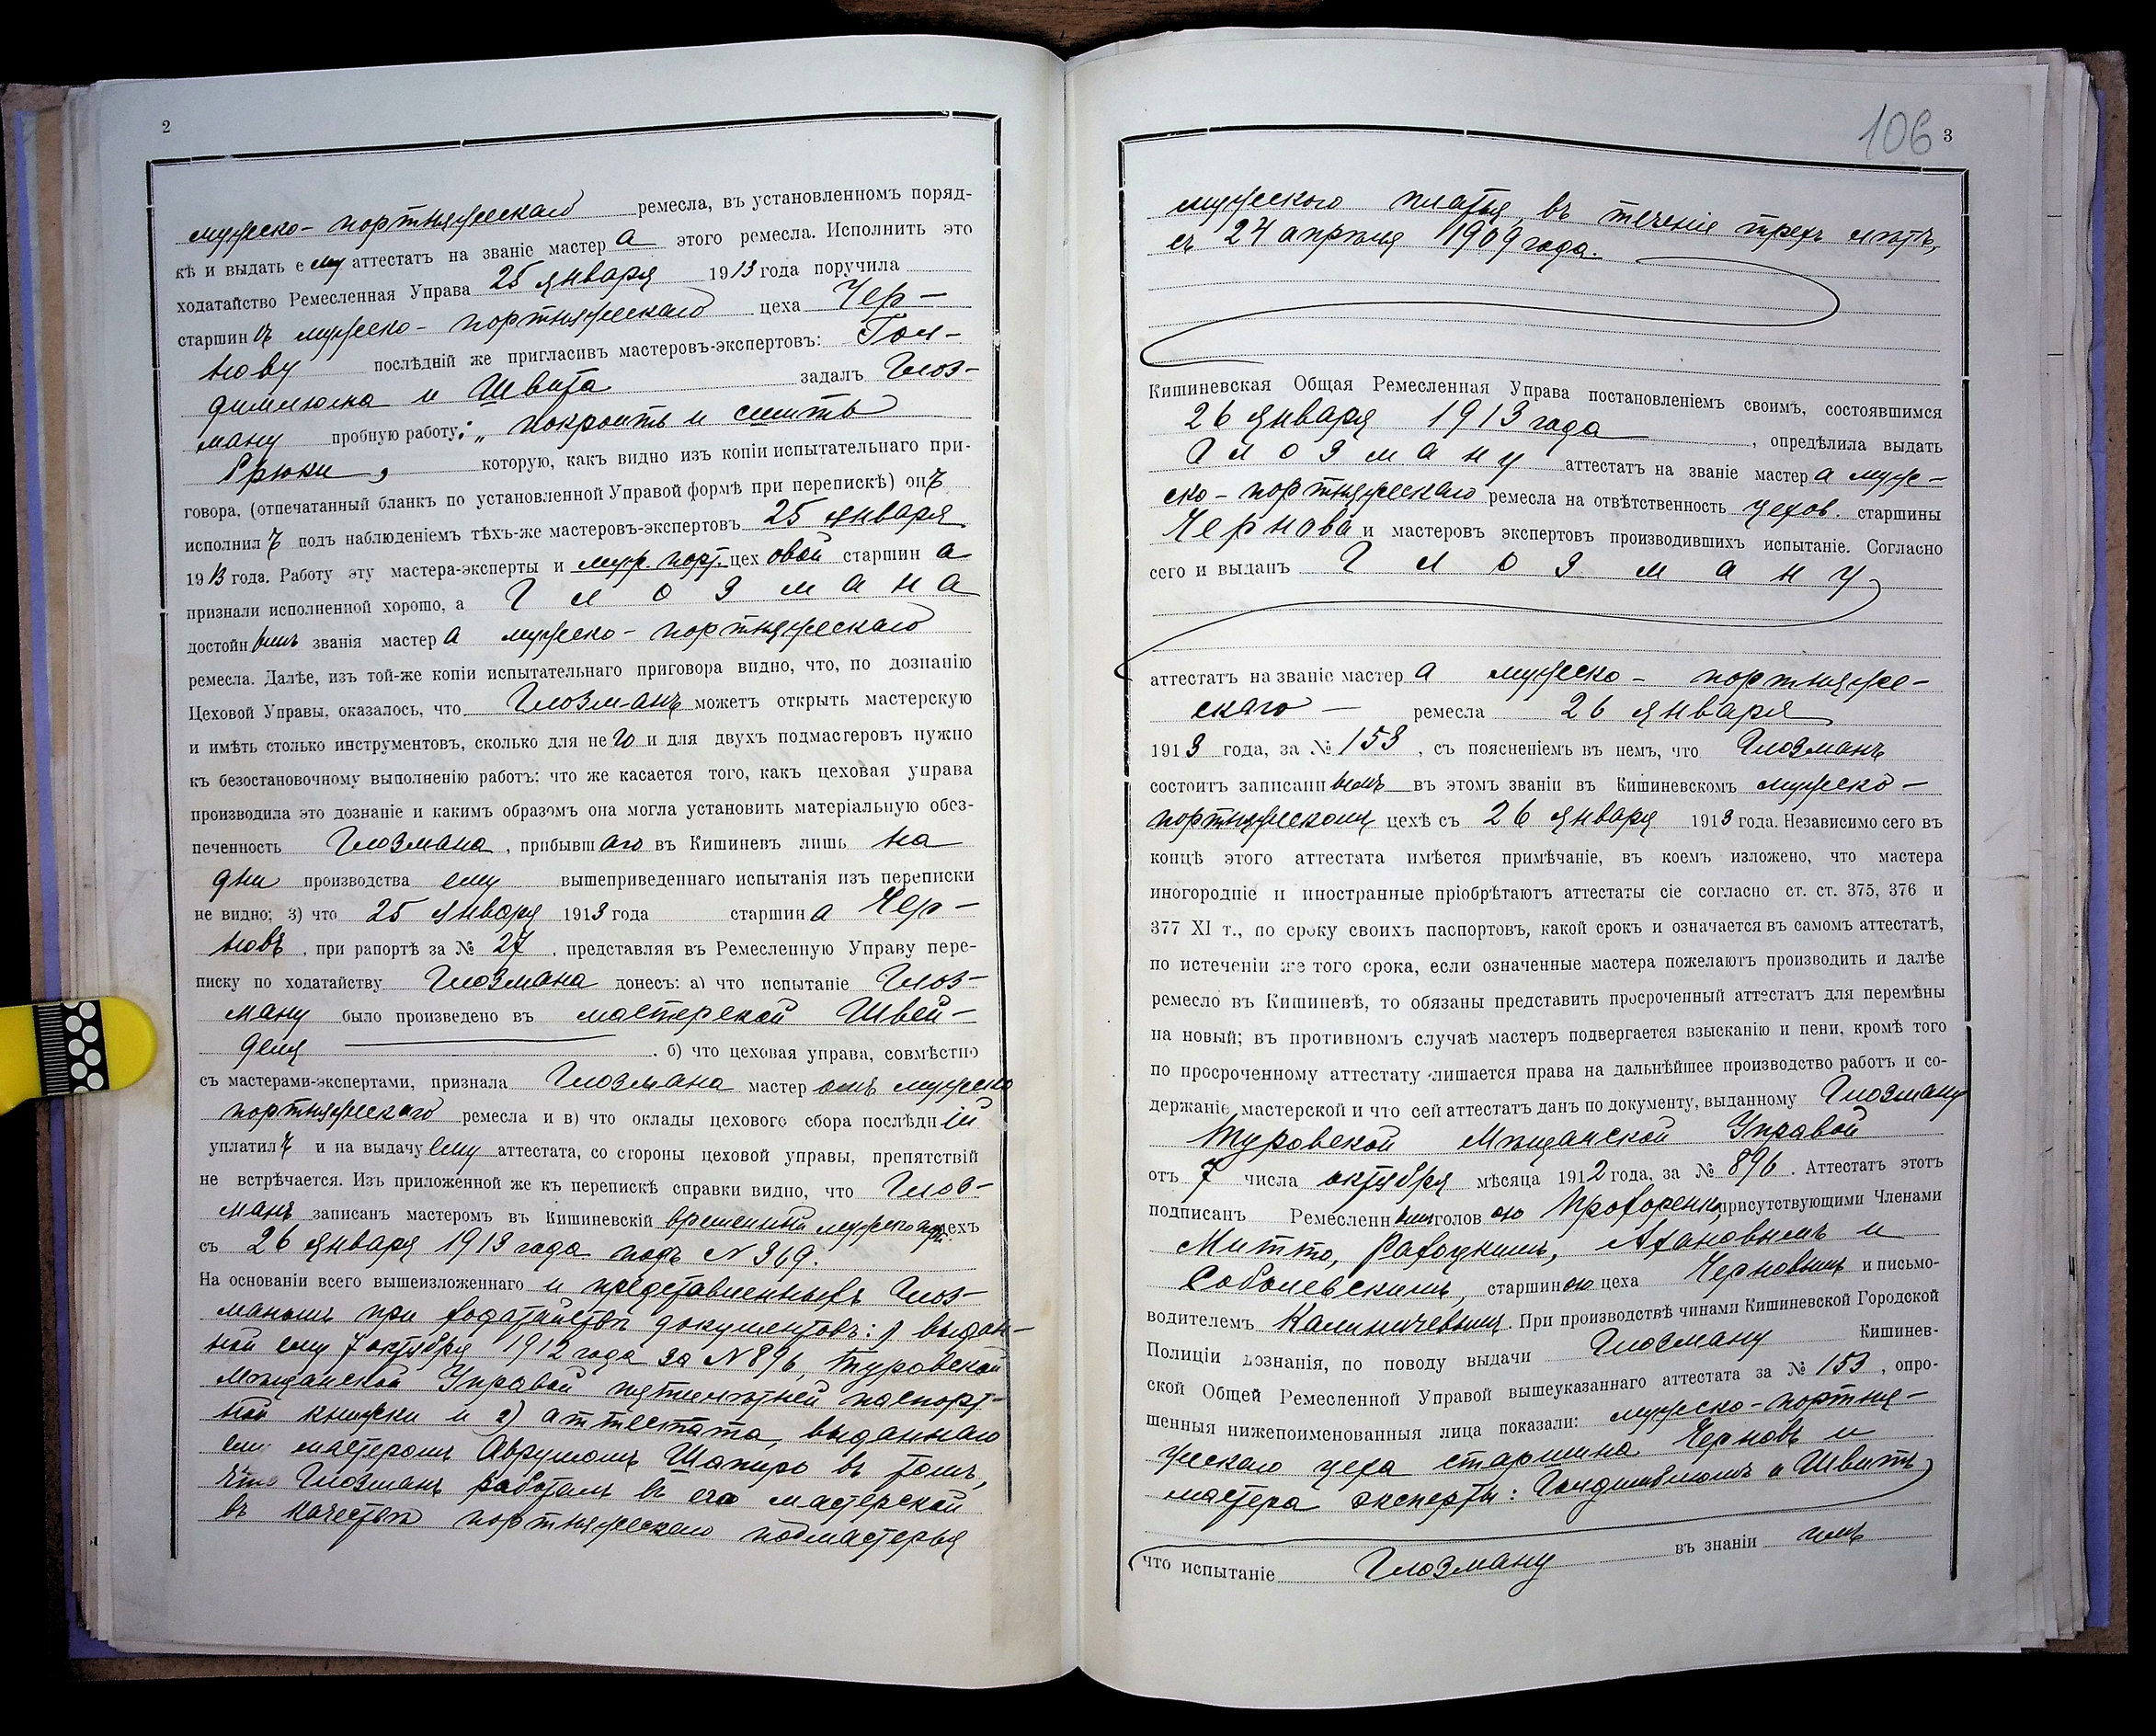 2
мужеско-портняжескаго ремесла, въ установленномъ поряд-
кѣ и выдать ему аттестатъ на званіе мастера этого ремесла. Исполнить это
ходатайство Ремесленная Управа 25 января 1913 года поручила
старшинѣ мужеско-портняжескаго цеха Чер-
нову послѣдній же пригласивъ мастеровъ-экспертовъ: Гол-
и Швита задалъ Глоз-
ману пробную работу: „покроить и сшить
брюки, которую, какъ видно изъ копіи испытательнаго при-
говора, (отпечатанный бланкъ по установленной Управой формѣ при перепискѣ) онъ
исполнилъ подъ наблюденіемъ тѣхъ-же мастеровъ-экспертовъ 25 января
1913 года. Работу эту мастера-эксперты и муж. порт. цеховой старшина
признали исполненной хорошо, а Глозмана
достойнымъ званія мастера мужеско-портняжескаго
ремесла. Далѣе, изъ той-же копіи испытательнаго приговора видно, что, по дознанію
Цеховой Управы, оказалось, что Глозманъ можетъ открыть мастерскую
и имѣть столько инструментовъ, сколько для него и для двухъ подмастеровъ нужно
къ безостановочному выполненію работъ: что же касается того, какъ цеховая управа
производила это дознаніе и какимъ образомъ она могла установить матеріальную обез-
печенность Глозмана, прибывшаго въ Кишиневъ лишь на
дни производства ему вышеприведеннаго испытанія изъ переписки
не видно; 3) что 25 января 1913 года старшина Чер-
новъ, при рапортѣ за № 27, представляя въ Ремесленную Управу пере-
писку по ходатайству Глозмана донесъ: а) что испытаніе Глоз-
ману было произведено въ мастерской Швей-
деля . б) что цеховая управа, совмѣстно
съ мастерами-экспертами, признала Глозмана мастеромъ мужеско
портняжескаго ремесла и в) что оклады цехового сбора послѣдній
уплатилъ и на выдачу ему аттестата, со стороны цеховой управы, препятствій
не встрѣчается. Изъ приложенной же къ перепискѣ справки видно, что Глоз-
манъ записанъ мастеромъ въ Кишиневскій временный мужеско цехъ
съ 26 января 1913 года подъ N 369.
На основаніи всего вышеизложеннаго и представленныхъ Глоз-
маномъ при ходатайствѣ документовъ: 1) выдан-
ной ему 7 октября 1912 года за N 896, Туровской
Мѣщанской Управой пятилѣтней паспорт-
ной книжки и 2) аттестата, выданнаго
ему мастеромъ Аврумомъ Шапиро въ томъ,
что Глозманъ работалъ въ его мастерской
въ качествѣ портняжескаго подмастерья
106 3
мужескаго платья, въ теченіе трехъ лѣтъ,
съ 24 апрѣля 1909 года.
Кишиневская Общая Ремесленная Управа постановленіемъ своимъ, состоявшимся
26 января 1913 года, опредѣлила выдать
Глозману аттестатъ на званіе мастера муже-
ско-портняжескаго ремесла на отвѣтственность цехов. старшины
Чернова и мастеровъ экспертовъ производившихъ испытаніе. Согласно
сего и выданъ Глозману
аттестатъ на званіе мастера мужеско-портняже-
скаго ремесла 26 января
1913 года, за № 153, съ поясненіемъ въ немъ, что Глозманъ
состоитъ записаннымъ въ этомъ званіи въ Кишиневскомъ мужеско-
портняжескомъ цехѣ съ 26 января 1913 года. Независимо сего въ
концѣ этого аттестата имѣется примѣчаніе, въ коемъ изложено, что мастера
иногородніе и иностранные пріобрѣтаютъ аттестаты сіе согласно ст. ст. 375, 376 и
377 XI т., по сроку своихъ паспортовъ, какой срокъ и означается въ самомъ аттестатѣ,
по истеченіи же того срока, если означенные мастера пожелаютъ производить и далѣе
ремесло въ Кишиневѣ, то обязаны представить просроченный аттестатъ для перемѣны
на новый; въ противномъ случаѣ мастеръ подвергается взысканію и пени, кромѣ того
по просроченному аттестату лишается права на дальнѣйшее производство работъ и со-
держаніе мастерской и что сей аттестатъ данъ по документу, выданному Глозману
Туровской Мѣщанской Управой
отъ 7 числа октября мѣсяца 1912 года, за № 896. Аттестатъ этотъ
подписанъ Ремесленнымъ головою присутствующими Членами
Митто, и
Соболевскимъ, старшиною цеха Черновымъ и письмо-
водителемъ Калиничевымъ. При производствѣ чинами Кишиневской Городской
Полиціи дознанія, по поводу выдачи Глозману Кишинев-
ской Общей Ремесленной Управой вышеуказаннаго аттестата за № 153, опро-
шенныя нижепоименованныя лица показали: мужеско-портня-
жескаго цеха старшина Черновъ и
мастера эксперты: и Швитъ
что испытаніе Глозману въ знаніи имъ